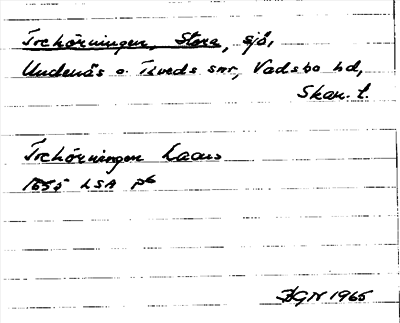 Trehörningen, Stora, sjö,
Undenäs o. Tiveds snr, Vadsbo hd,
Skar. l.
Trehörningen Laaus
1655 LSA P6
GN 1965